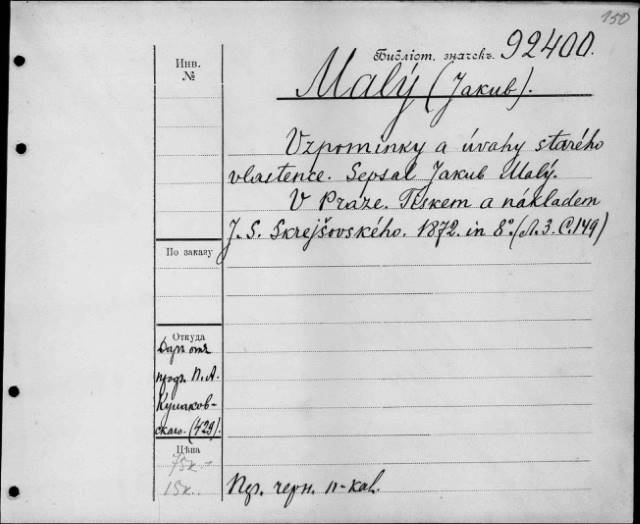 150
Библіот. значекъ. 92400.
Инв.
№
Malý (Jakub).
Vzpomínky a úvahy starého
vlastence. Sepsal Jakub Malý.
V Praze. Tiskem a nákladem
J. S. Skrejšovského. 1872. in 8º. (Л. 3. С. 149)
По заказу
Откуда
Даръ отъ
проф. П. А.
Кулаков-
скаго. (429).
Цѣна
75к.
15к.
черн. п-кал.